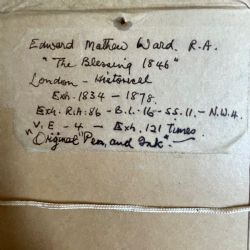 Edward Mathew Ward. R.A.
"The Blessing 1846"
London - Historical
Exh. 1834 - 1878.
Exh. R.A: 86 - B.I. - 16 - SS. 11. - N.W.
V.E - 4 - Exh. 121 Times
"Original Pen, and Ink" -